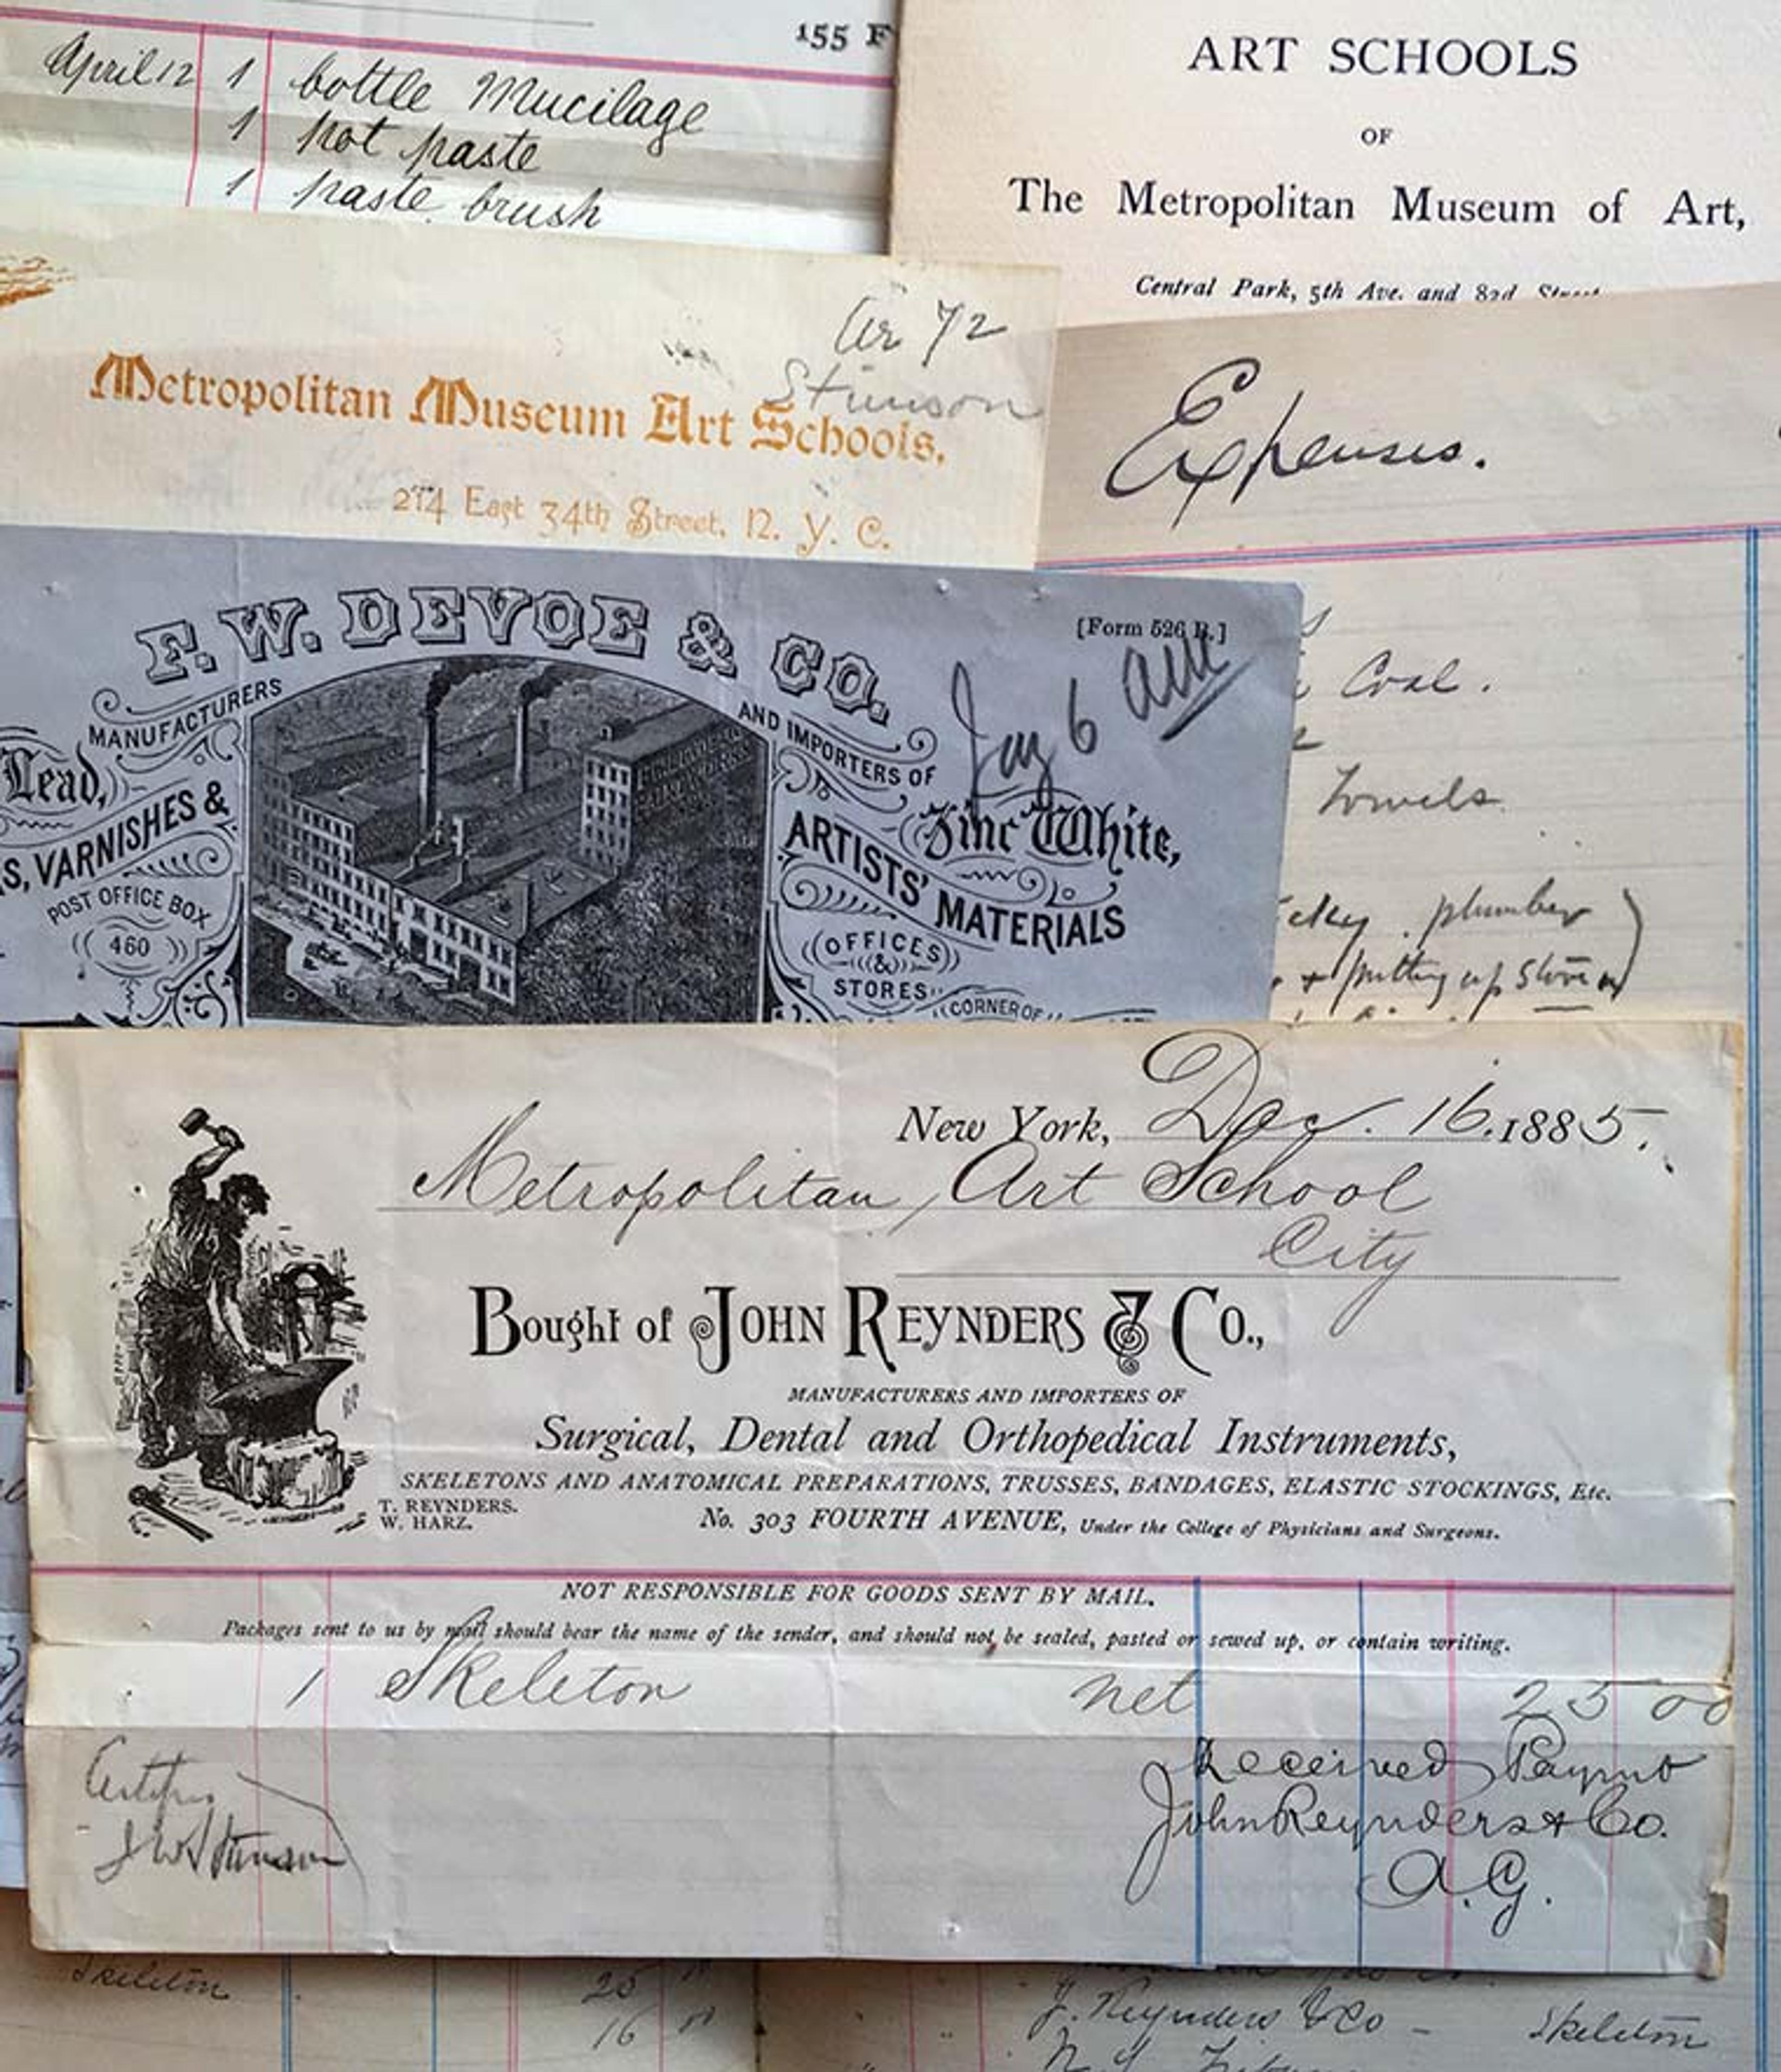 155 F
April 12 1 bottle Mucilage
1 pot paste
1 paste brush
ART SCHOOLS
OF
The Metropolitan Museum of Art,
Central Park, 5th Ave. and 82d Street
72
Stimson
Metropolitan Museum Art Schools,
214 East 34th Street, N. Y. C.
Expenses.
Coal.
Towels
plumber
& putting up Stove
F. W. DEVOE & CO.
[Form 526 B.]
MANUFACTURERS
AND IMPORTERS OF
Lead,
S, VARNISHES &
POST OFFICE BOX
460
6
Zinc White,
ARTISTS' MATERIALS
OFFICES
&
STORES
CORNER OF
New York, Dec. 16. 1885.
Metropolitan Art School
City
Bought of JOHN REYNDERS & CO.,
MANUFACTURERS AND IMPORTERS OF
Surgical, Dental and Orthopedical Instruments,
SKELETONS AND ANATOMICAL PREPARATIONS, TRUSSES, BANDAGES, ELASTIC STOCKINGS, Etc.
T. REYNDERS.
W. HARZ.
No. 303 FOURTH AVENUE, Under the College of Physicians and Surgeons.
NOT RESPONSIBLE FOR GOODS SENT BY MAIL.
Packages sent to us by mail should bear the name of the sender, and should not be sealed, pasted or sewed up, or contain writing.
1 Skeleton net 25 00
Received Paymt
John Reynders & Co.
A. G.
J W Stimson
Skeleton 25
16
J. Reynders & Co - Skeleton